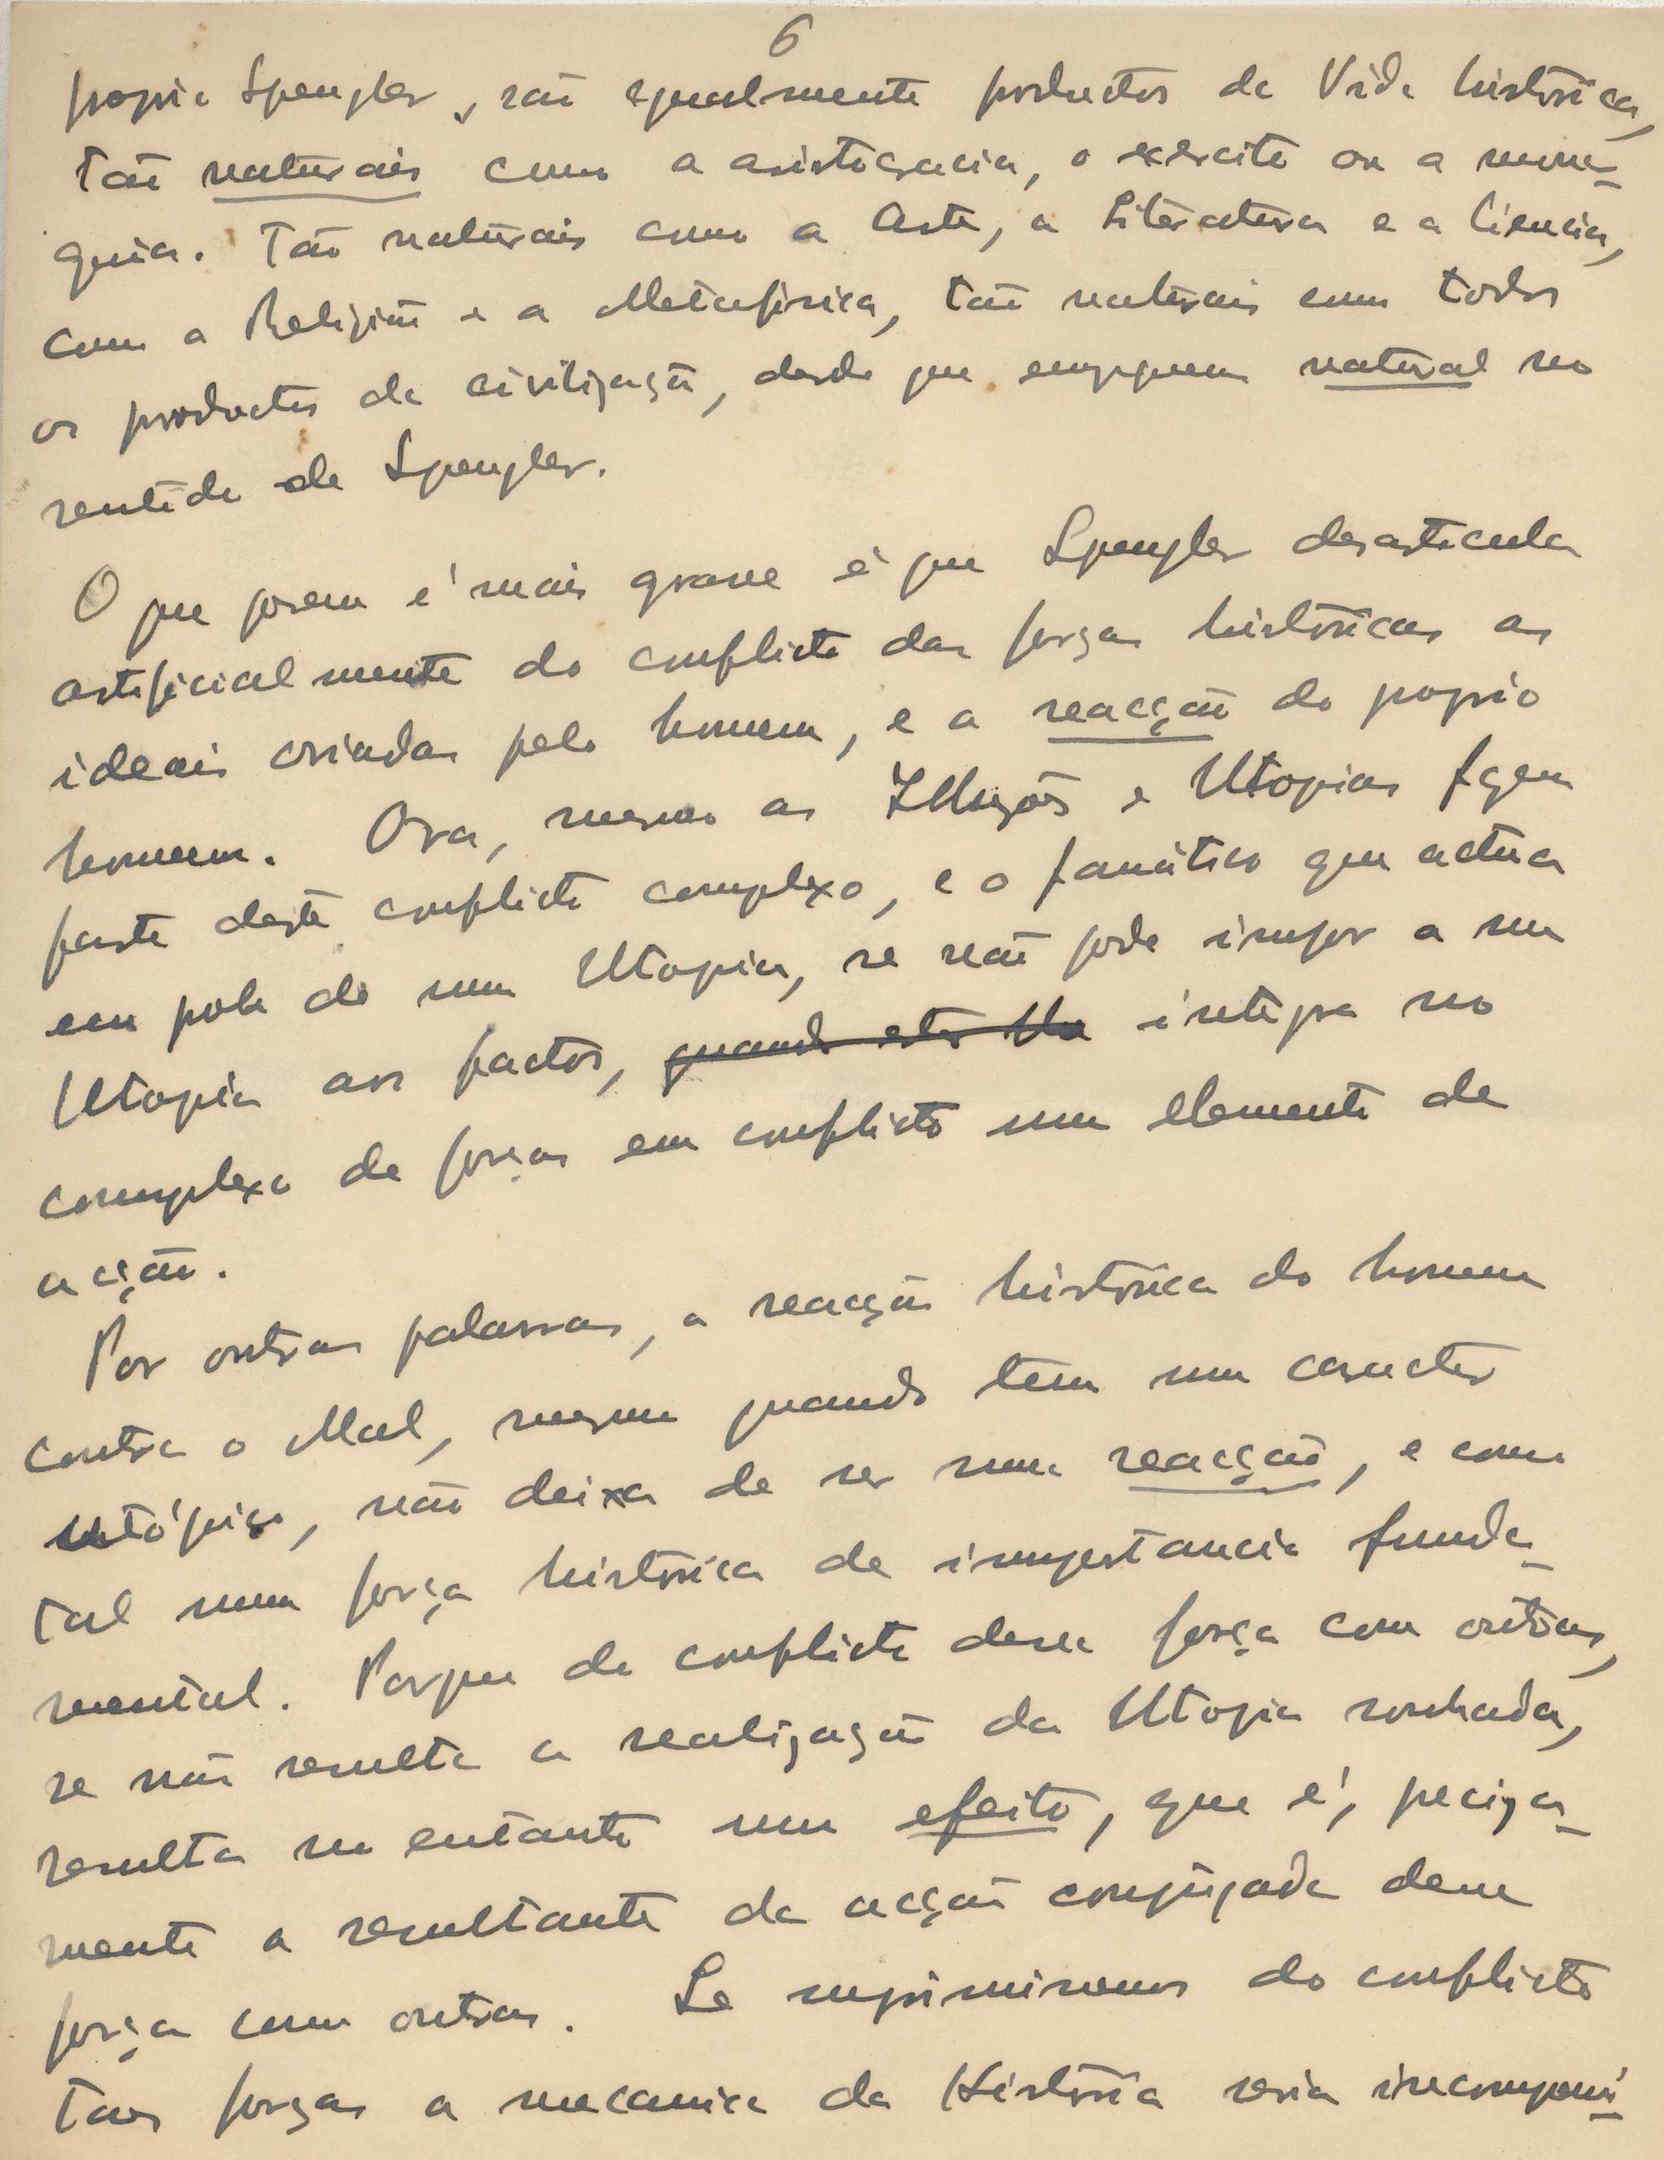 6
proprio Spengler, são egualmente productos da Vida historica,
tão naturais como a aristocracia, o exercito ou a monar-
quia. Tão naturais como a Arte, a Literatura e a Ciencia,
como a Religião e a Metafisica, tão naturais como todos
os productos da civilização, desde que empreguem natural no
sentido de Spengler.
O que porem é mais grave é que Spengler desarticula
artificialmente do conflicto das forças históricas as
ideais criadas pelo homem, e a reacção do proprio
homem. Ora, mesmo as Illusões e Utopias fazem
parte deste conflicto complexo, e o fanático que actua
em pról de uma Utopia, se não pode impor a sua
Utopia aos factos, quando estes integra no
complexo de forças em conflicto um elemento de
acção.
Por outras palavras, a reacção histórica do homem
contra o Mal, mesmo quando tem um caracter
utópico, não deixa de ser uma reacção, e como
tal uma força histórica de importancia funda-
mental. Porque do conflicto dessa força com outras,
se não resulta a realização da Utopia sonhada,
resulta no entanto um efeito, que é, preciza-
mente a resultante da acção conjugada dessa
força com outras. Se suprimirmos do conflicto
taes forças a mecanica da História seria incompreen-